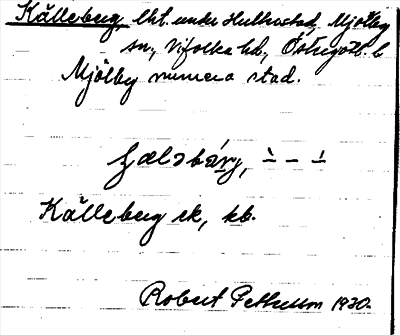 Kålleberg, lht. under Hulterstad, Mjölby
sn, Vifolka hd, Östergötl. l
Mjölby numera stad.
Kålleberg ek, kb.
Robert Pettersson 1930.